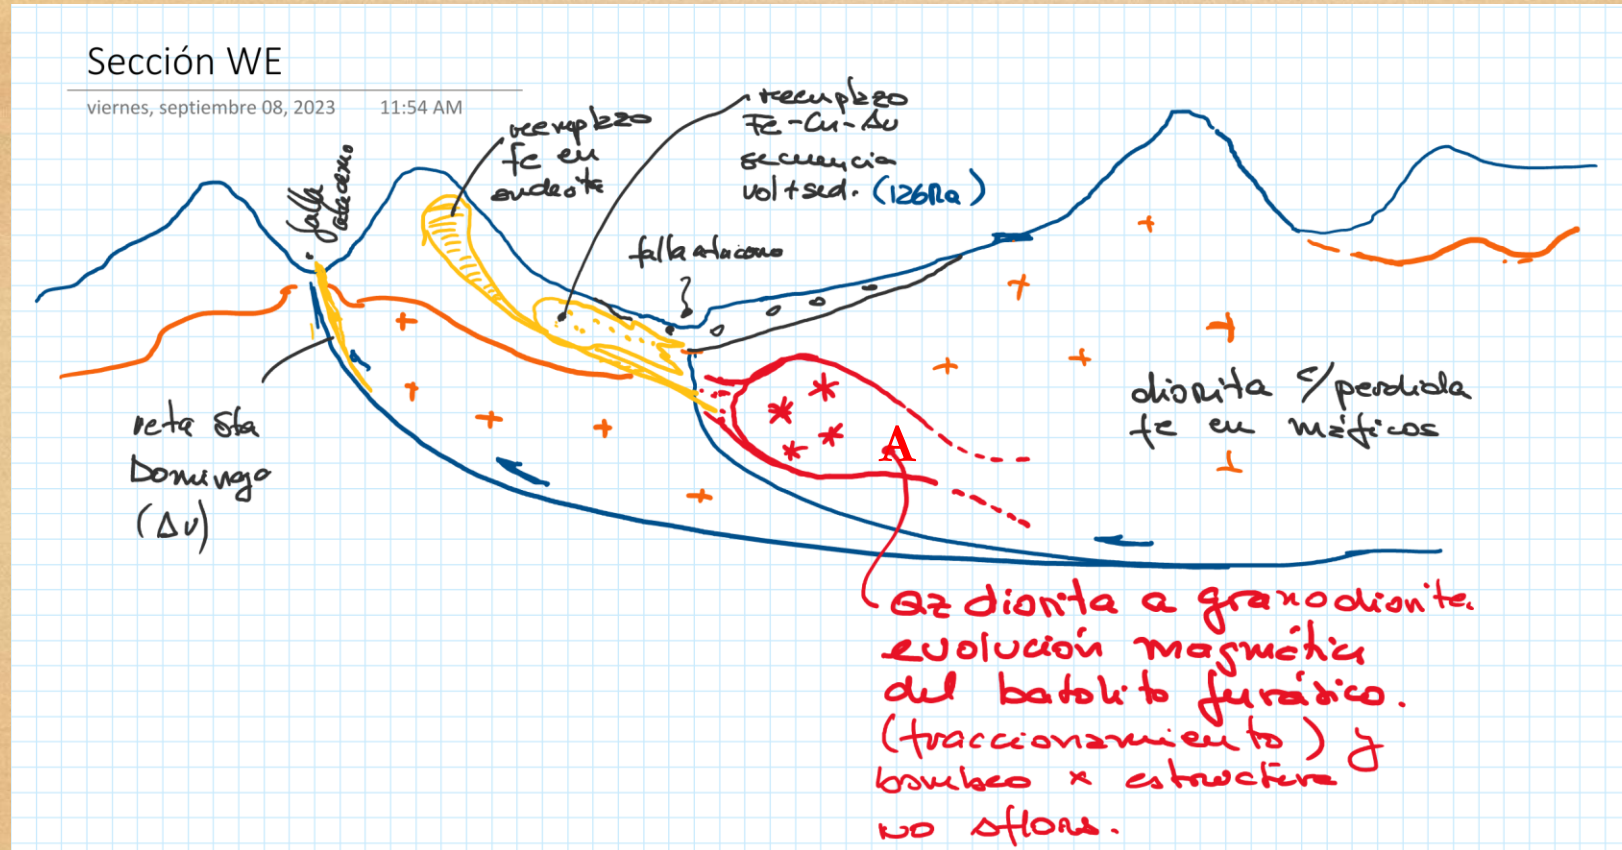 Sección WE
viernes, septiembre 08, 2023 11:54 AM
falla
reemplazo
fe en
andesita
reemplazo
Fe-Cu-Au
secuencia
vol+sed. (126Ma)
falla atacama
veta Sta
Domingo
(Au)
diorita c/perdida
fe en máficos
A
Qz diorita a granodiorita.
evolución magmática
del batolito Jurásico.
(fraccionamiento) y
bombeo x estructura
no aflora.